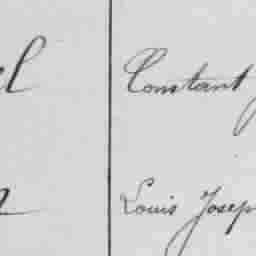 Constant
Louis Joseph